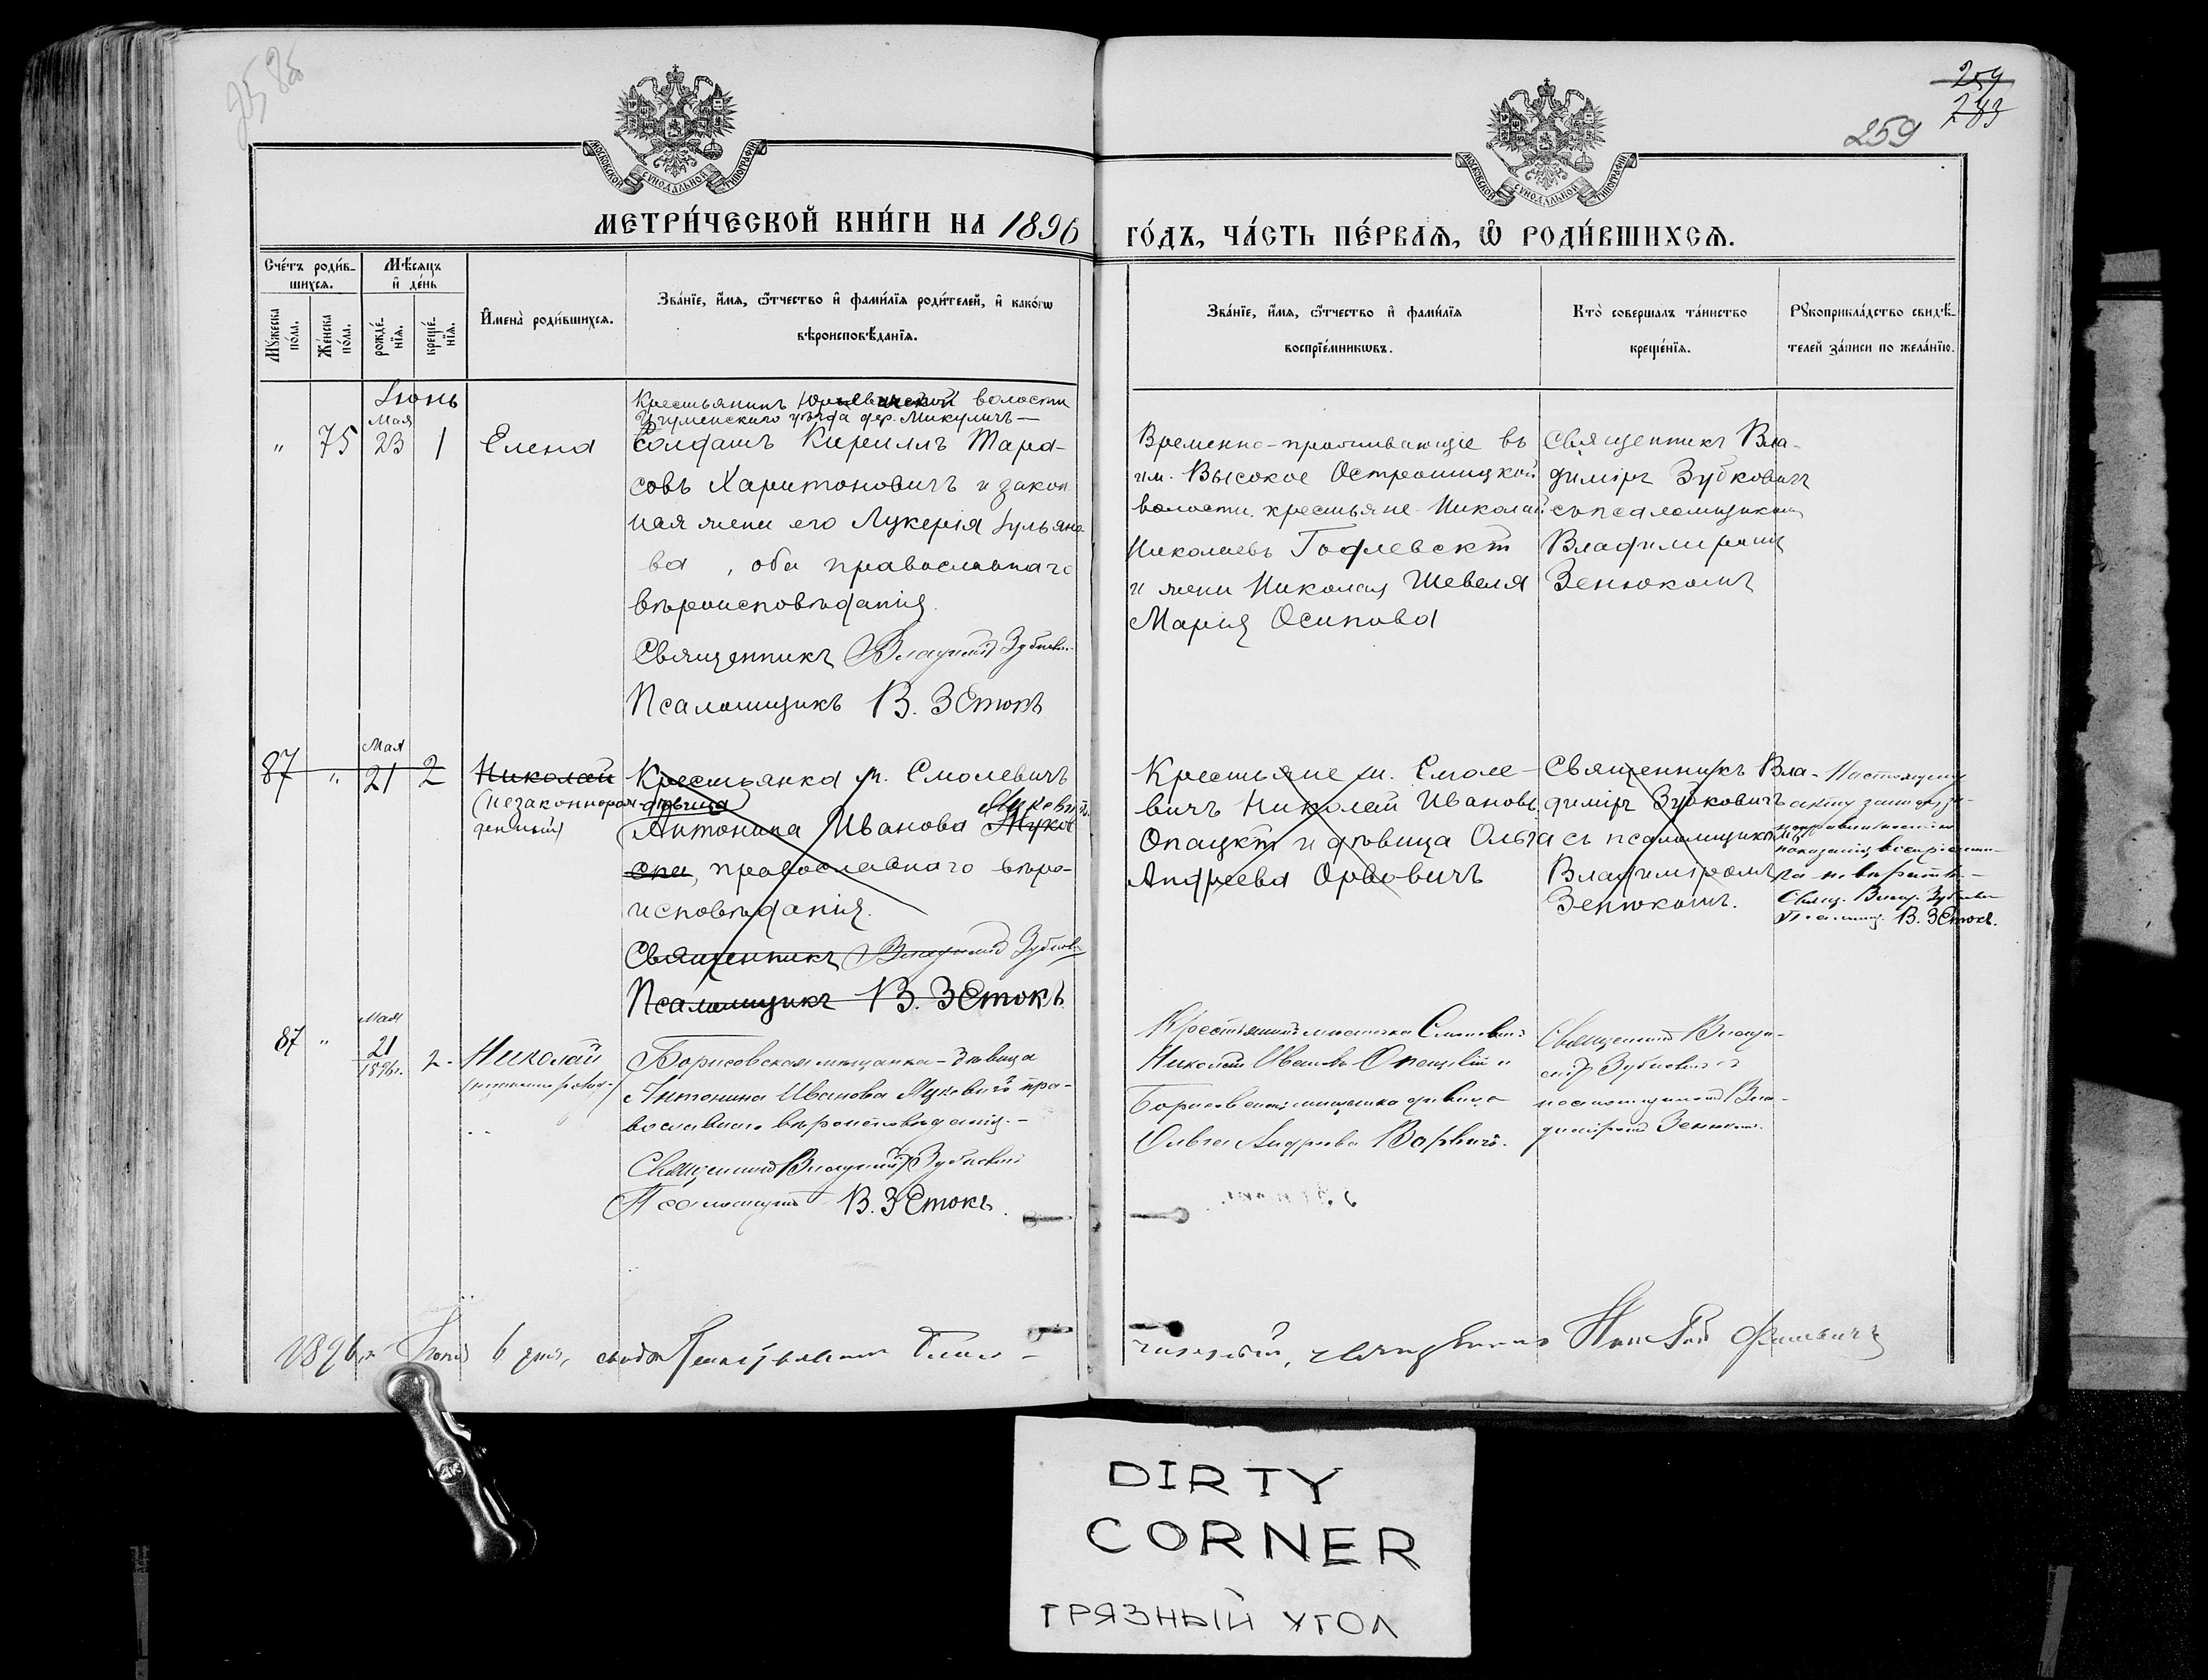 259
283
259
МОСКОВСКОЙ СѴНОДАЛЬНОЙ ТИПОГРАФІИ
МОСКОВСКОЙ СѴНОДАЛЬНОЙ ТИПОГРАФІИ
МЕТРИ́ЧЕСКОЙ КНИ́ГИ НА 1896
ГО́ДЪ, ЧА́СТЬ ПЕ́РВАѦ, Ѡ҆ РОДИ́ВШИХСѦ.
Сче́тъ роди́в-
шихсѧ.
Мꙋ́жеска по́ла.
Же́нска по́ла.
Мѣ́сѧцъ
и҆ де́нь
рожде́-
нїѧ.
креще́-
нїѧ.
И҆мена̀ роди́вшихсѧ.
Зва́нїе, и҆́мѧ, ѻ҆́тчество и҆ фами́лїѧ роди́телей, и҆ како́гѡ
вѣроисповѣ́данїѧ.
Зва́нїе, и҆́мѧ, ѻ҆́тчество и҆ фами́лїѧ
воспрїе́мникѡвъ.
Кто̀ соверша́лъ та́инство
креще́нїѧ.
Рꙋкоприкла́дство свидѣ́-
телей за́писи по жела́нїю.
Іюнь
Мая
" 75 23 1 Елена
Крестьянинъ волости
Игуменскаго уѣзда дер. Микуличъ
Солдатъ Кириллъ Тара-
совъ Харитоновичъ и закон
ная жена его Лукерія Іульяно
ва , оба православнаго
вѣроисповѣданія.
Священникъ Владиміръ Зубковичъ
Псаломщикъ В. Зенюкъ
Временно-проживающіе въ
им. Высокое Острошицкой
волости крестьяне Николай
Николаевъ Гофлевскій
и жена Николая Шевеля
Марія Осипова
Священникъ Вла-
диміръ Зубковичъ
съ псаломщикомъ
Владиміромъ
Зенюкомъ
Мая
87 " 21 2 Николай
(незаконнорож-
денный)
Крестьянка м. Смолевичъ
дѣвица
Антонина Иванова Жуков
православнаго вѣро-
исповѣданія.
Священникъ Владиміръ Зубкович
Псаломщикъ В. Зенюкъ
Крестьяне м. Смоле-
вичъ Николай Ивановъ
Опацкій и дѣвица Ольга
Андреева
Священникъ Вла-
диміръ Зубковичъ
съ псаломщикомъ
Владиміромъ
Зенюкомъ.
Настоящему
акту
Свящ. Влад. Зубкович
Псаломщ. В. Зенюкъ.
Мая
87 " 21 2. Николай
1896г.
Борисовская мѣщанка-дѣвица
Антонина Иванова пра-
вославнаго вѣроисповѣданія.
Священникъ Владиміръ Зубковичъ
Псаломщикъ В. Зенюкъ.
Крестьянинъ мѣстечка Смолевичъ
Николай Ивановъ Опацкій и
Борисовская мѣщанка дѣвица
Ольга Андреева
Священникъ Влади-
міръ Зубковичъ съ
псаломщикомъ Вла-
диміромъ Зенюкомъ.
1896 г. Іюня 6 дня,
DIRTY
CORNER
ГРЯЗНЫЙ УГОЛ